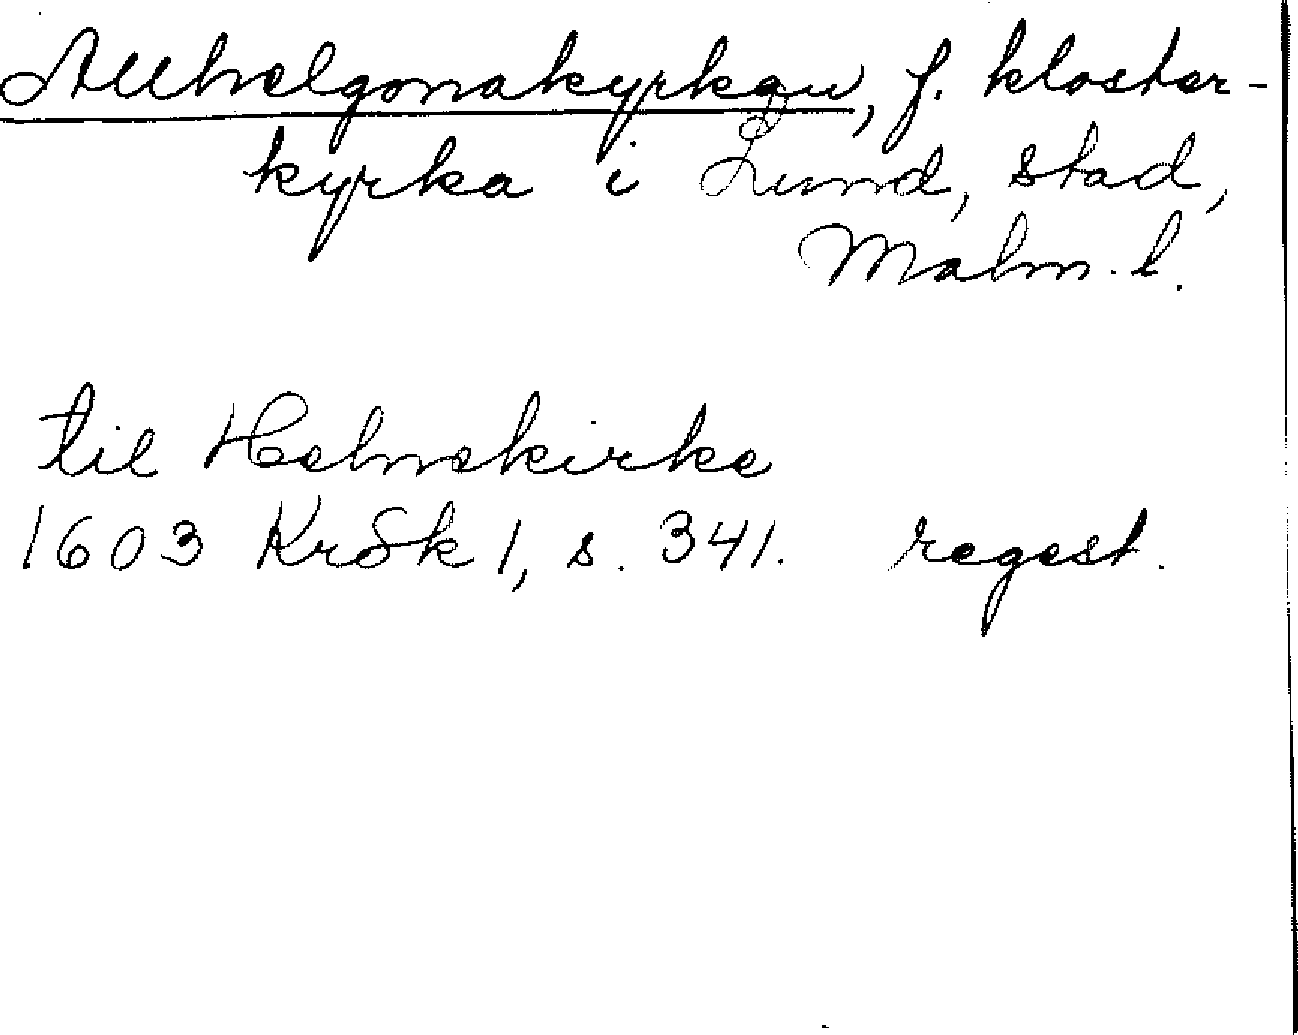 Allhelgonakyrkan, f. kloster-
kyrka i Lund, stad,
Malm. l.
til Helnekirke
1603 KrSk 1, s. 341. regest.